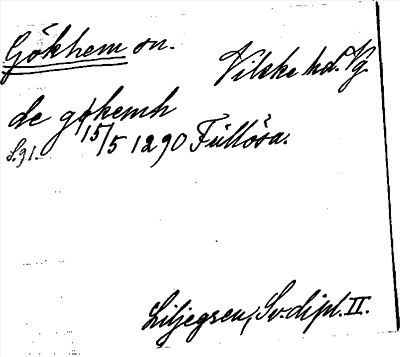 Gökhem sn. Vilske hd. Vg.
de gøkemh
S. 91. 15/5 1290 Fullösa.
Liljegren, Sv. dipl. II.